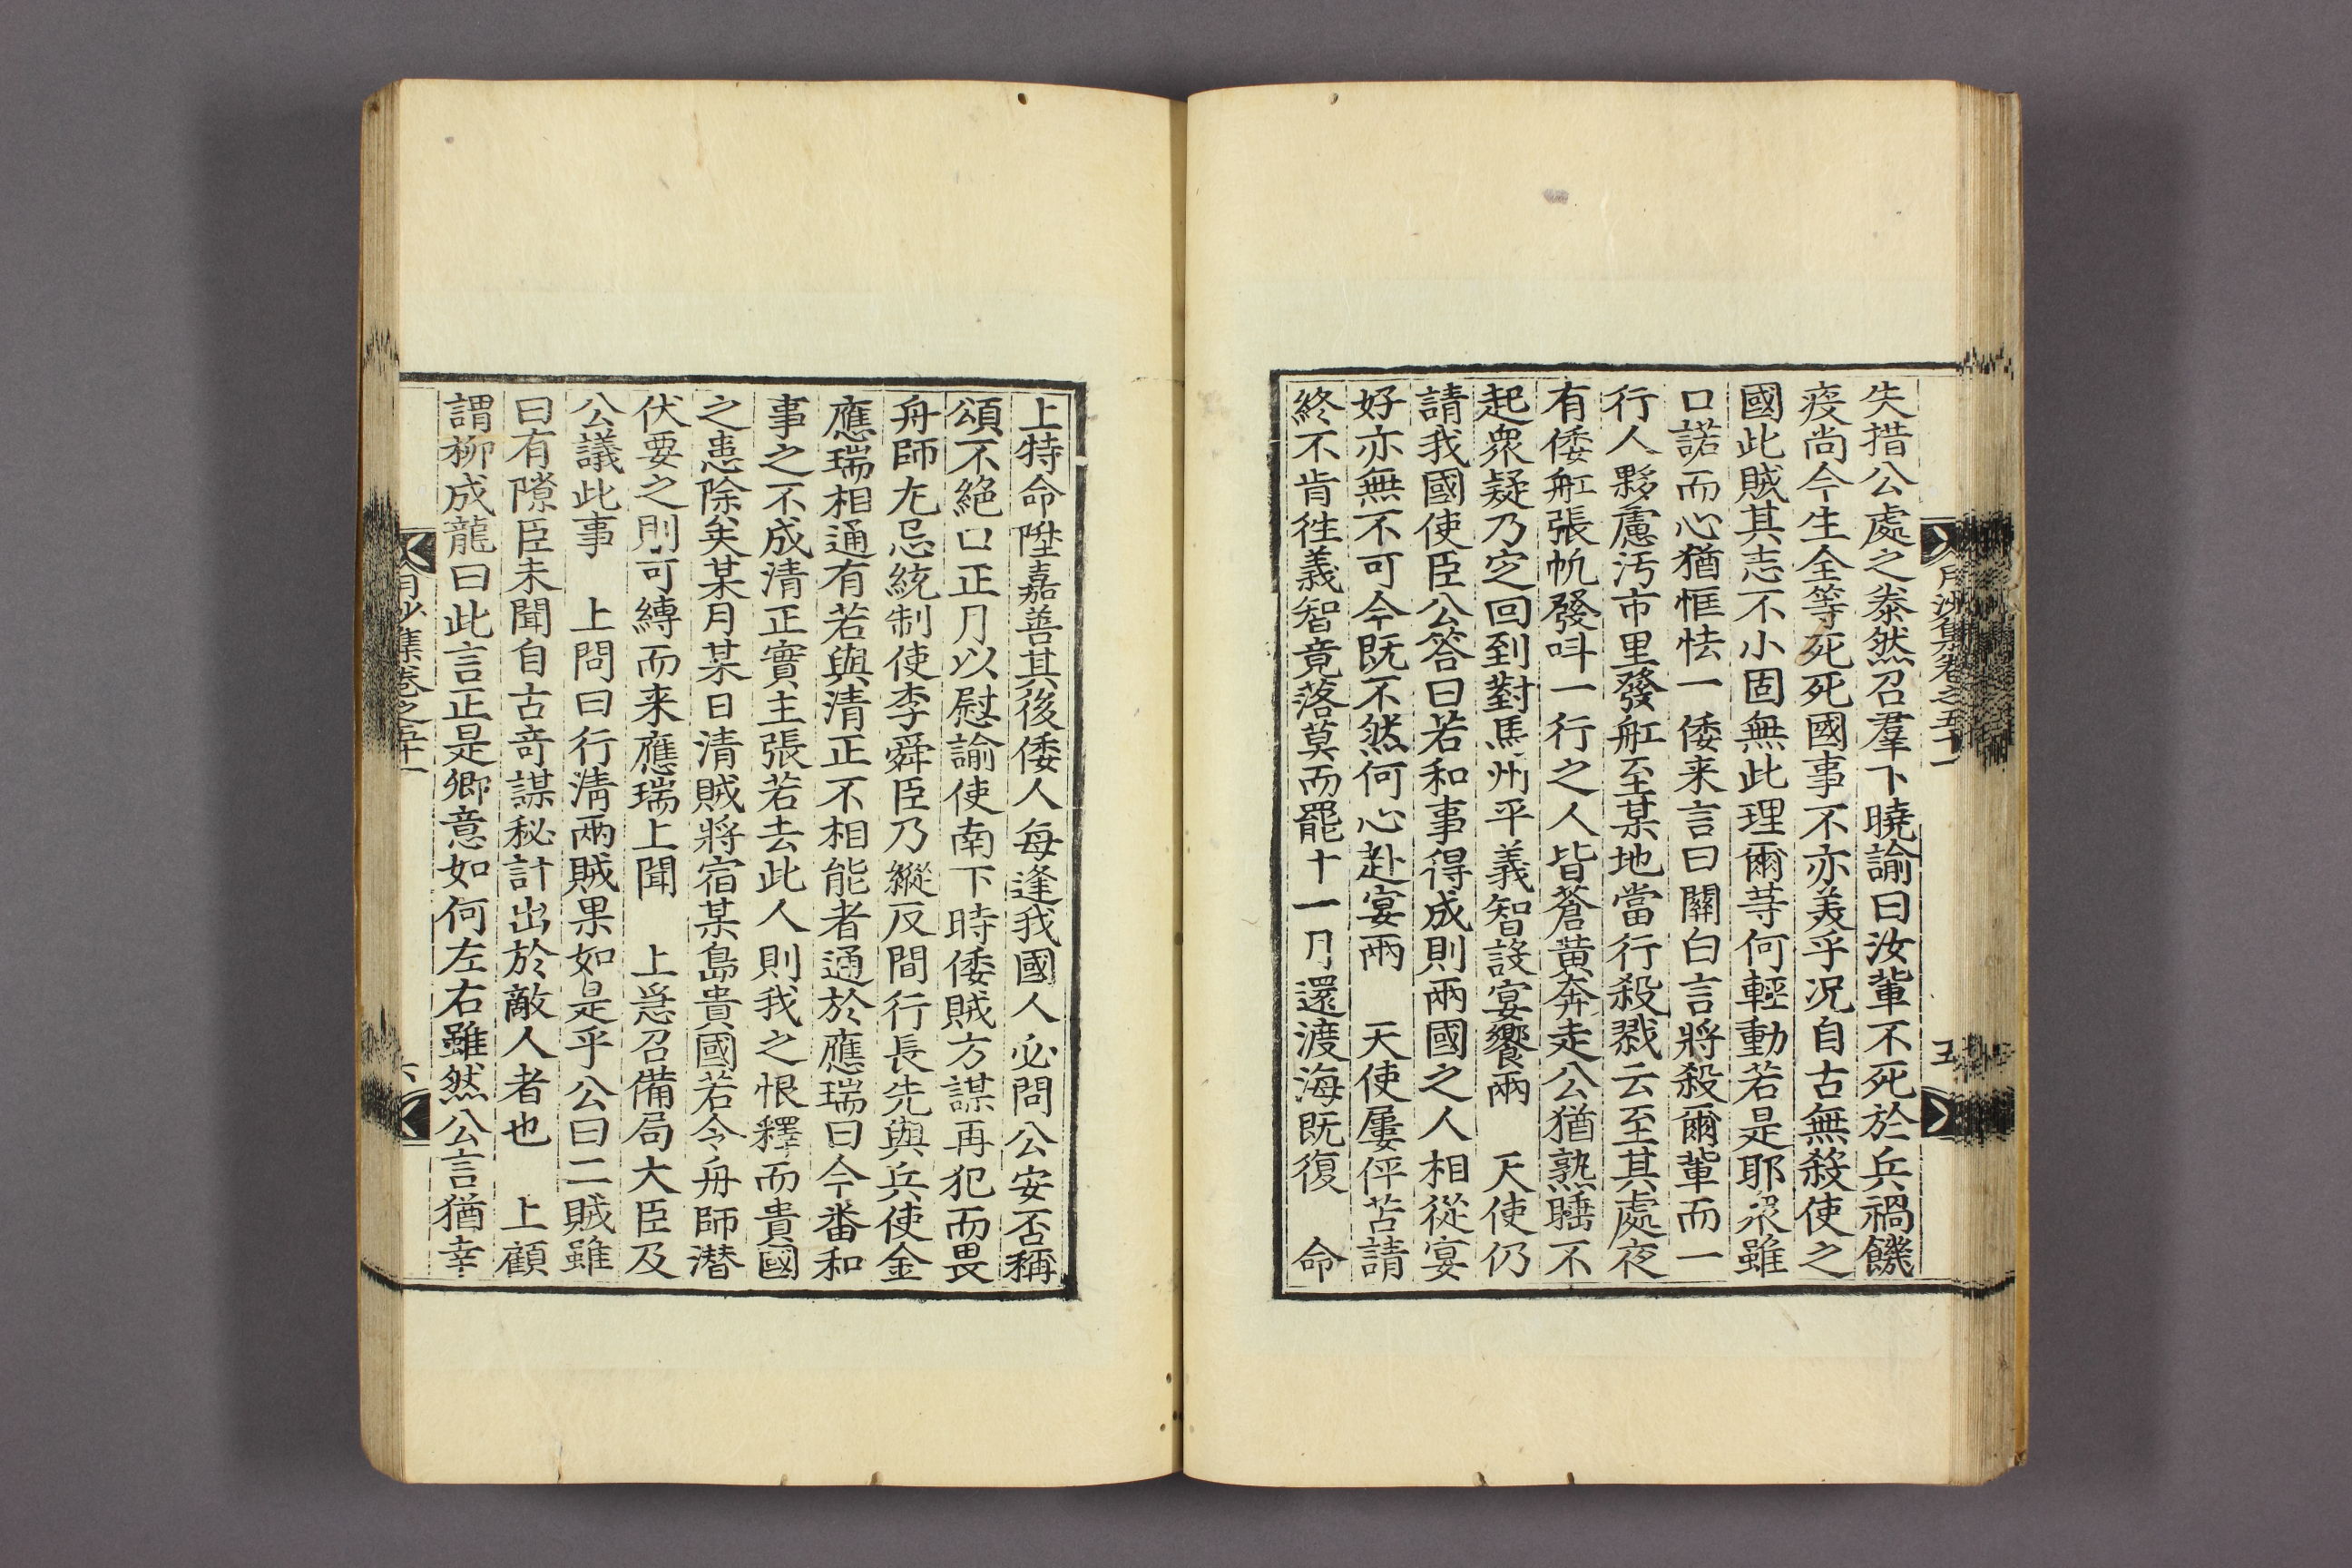 失措公處之泰然召羣下曉諭曰汝軰不死於兵禍饑
疫尚今生全等死死國事不亦美乎况自古無殺使之
國此賊其志不小固無此理爾䓁何輕動若是耶衆雖
口諾而心猶恇怯一倭来言曰關白言將殺爾軰而一
行人夥慮汚市里發舡至某地當行殺戮云至其處夜
有倭舡張帆發呌一行之人皆蒼黄奔走公猶熟睡不
起衆疑乃定回到對馬州平義智設宴饗兩　天使仍
請我國使臣公答曰若和事得成則兩國之人相從宴
好亦無不可今既不然何心赴宴兩　天使屢伻苦請
終不肯徃義智竟落莫而罷十一月還渡海既復　命
月沙集卷之五十一
五
上特命陞嘉善其後倭人每逢我國人必問公安否稱
頌不絶口正月以慰諭使南下時倭賊方謀再犯而畏
舟師尤忌統制使李舜臣乃縱反間行長先與兵使金
應瑞相通有若與清正不相能者通於應瑞曰今番和
事之不成清正實主張若去此人則我之恨釋而貴國
之患除矣某月某日清賊將宿某島貴國若令舟師潜
伏要之則可縛而来應瑞上聞　上急召備局大臣及
公議此事　上問曰行淸兩賊果如是乎公曰二賊雖
曰有隙臣未聞自古竒謀秘計出於敵人者也　上顧
謂柳成龍曰此言正是卿意如何左右雖然公言猶幸
月沙集卷之五十一
六